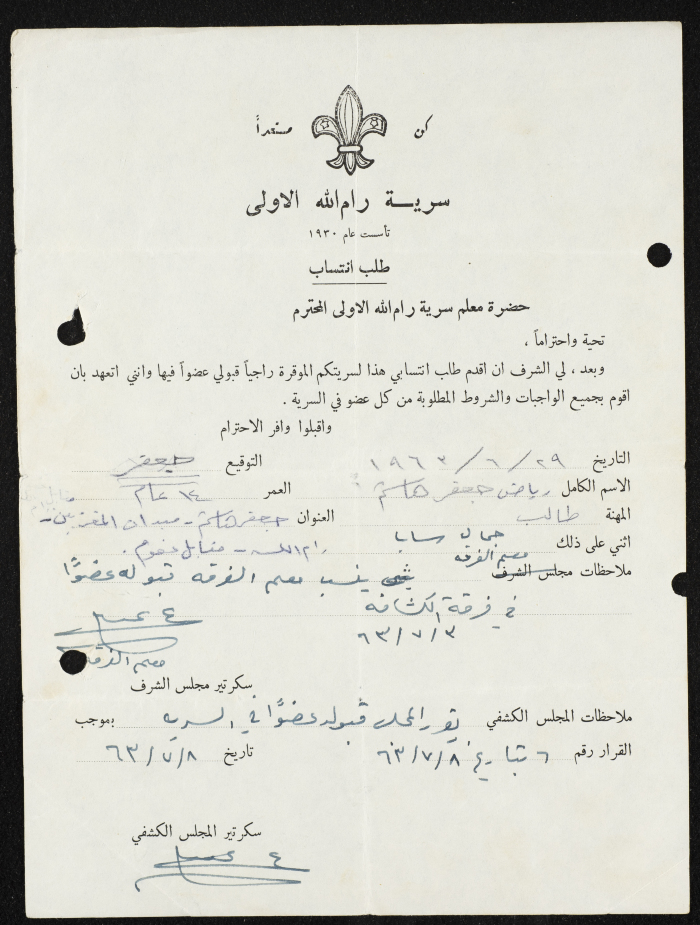 كن مستعداً
سرية رام الله الاولى
تأسست عام ١٩٣٠
طلب انتساب
حضرة معلم سرية رام الله الاولى المحترم
تحية واحتراماً ،
وبعد ، لي الشرف ان اقدم طلب انتسابي هذا لسريتكم الموقرة راجياً قبولي عضواً فيها وانني اتعهد بان
اقوم بجميع الواجبات والشروط المطلوبة من كل عضو في السرية .
واقبلوا وافر الاحترام
التاريخ ٢٩/٦/١٩٦٣ التوقيع جعفر
الاسم الكامل رياض جعفر هاشم العمر ١٤ عام
المهنة طالب العنوان جعفر هاشم - ميدان المغتربين -
اثني على ذلك جمال سابا رام الله - مقابل
معلم الفرقه
ملاحظات مجلس الشرف ينسب معلم الفرقه قبوله عضوًا
في فرقة الكشافه
٦٣/٧/٣
معلم الفرقه
سكرتير مجلس الشرف
ملاحظات المجلس الكشفي يقرر المجلس قبوله عضوًا في السريه بموجب
القرار رقم ٦ بتاريخ ٦٣/٧/٨ تاريخ ٦٣/٧/٨
سكرتير المجلس الكشفي